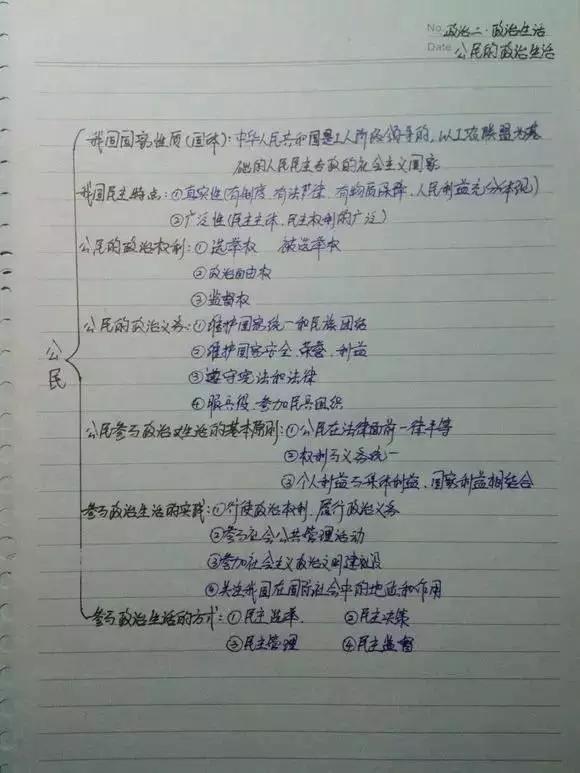 No. 政治二·政治生活
Date 公民的政治生活
我国国家性质(国体):中华人民共和国是工人阶级领导的,以工农联盟为基
础的人民民主专政的社会主义国家
我国民主特点:①真实性(有制度、有法律、有物质保障、人民利益充分体现)
②广泛性(民主主体、民主权利的广泛)
公民的政治权利:①选举权 被选举权
②政治自由权
③监督权
公民的政治义务:①维护国家统一和民族团结
②维护国家安全、荣誉、利益
③遵守宪法和法律
④服兵役、参加民兵组织
公民
公民参与政治生活的基本原则:①公民在法律面前一律平等
②权利与义务统一
③个人利益与集体利益、国家利益相结合
参与政治生活的实践:①行使政治权利、履行政治义务
②参与社会公共管理活动
③参加社会主义政治文明建设
④关注我国在国际社会中的地位和作用
参与政治生活的方式:①民主选举 ②民主决策
③民主管理 ④民主监督